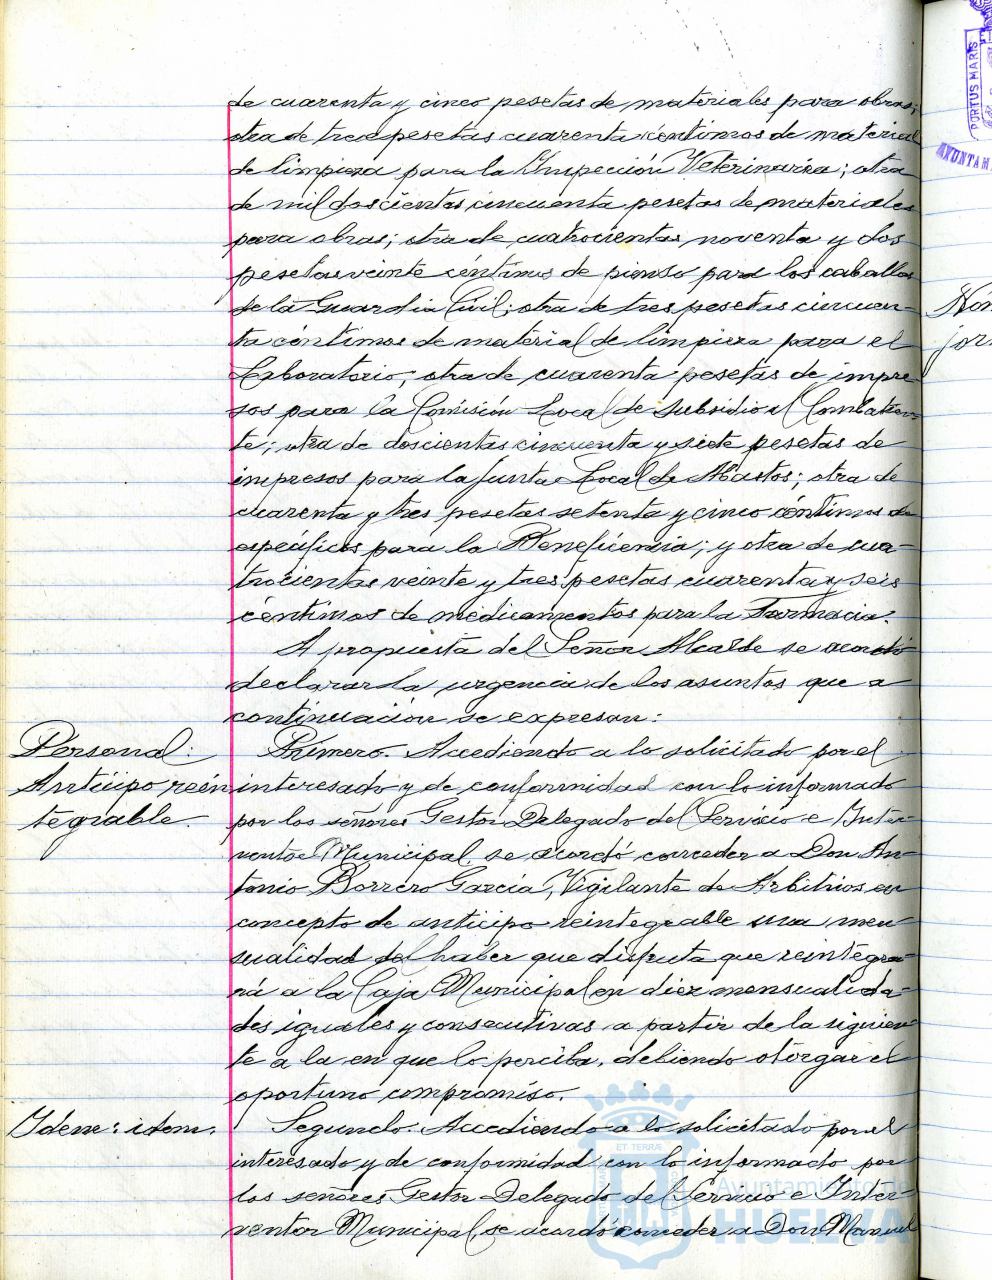 de cuarenta y cinco pesetas de materiales para obras;
otra de trece pesetas cuarenta céntimos de material
de limpieza para la Inspección Veterinaria; otra
de mil doscientas cincuenta pesetas de materiales
para obras; otra de cuatrocientas noventa y dos
pesetas veinte céntimos de pienso para los caballos
de la Guardia Civil; otra de tres pesetas cincuen-
ta céntimos de material de limpieza para el
Laboratorio; otra de cuarenta pesetas de impre-
sos para la Comisión Local de Subsidio al Combatien-
te; otra de doscientas cincuenta y siete pesetas de
impresos para la Junta Local de Abastos; otra de
cuarenta y tres pesetas setenta y cinco céntimos de
específicos para la Beneficencia; y otra de cua-
trocientas veinte y tres pesetas cuarenta y seis
céntimos de medicamentos para la Farmacia.
A propuesta del Señor Alcalde se acordó
declarar la urgencia de los asuntos que a
continuación se expresan:
Personal:
Anticipo rein
tegrable.
Primero. Accediendo a lo solicitado por el
interesado y de conformidad con lo informado
por los señores Gestor Delegado del Servicio e Inter-
ventor Municipal, se acordó conceder a Don An-
tonio Borrero García, Vigilante de Arbitrios en
concepto de anticipo reintegrable una men-
sualidad del haber que disfruta que reintegra-
rá a la Caja Municipal en diez mensualida-
des iguales y consecutivas a partir de la siguien-
te a la en que lo perciba, debiendo otorgar el
oportuno compromiso.
Idem: idem.
Segundo. Accediendo a lo solicitado por el
interesado y de conformidad con lo informado por
los señores Gestor Delegado del Servicio e Inter-
ventor Municipal se acordó conceder a Don Manuel
PORTUS MARIS
AYUNTAM
Nom
jor
ET TERRÆ
Ayuntamiento de
HUELVA